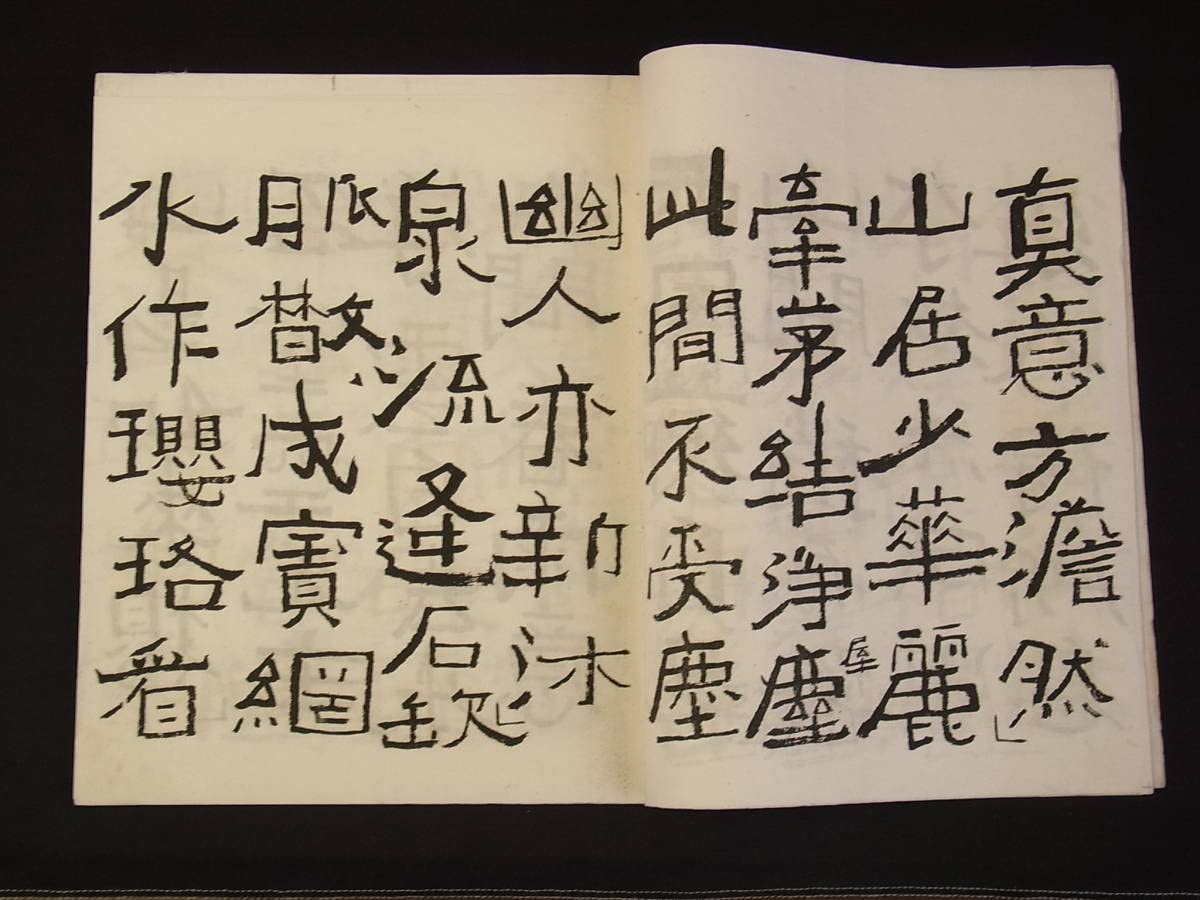 真意方澹然」
山居少華麗
牽茅結淨塵
屋
此間不受塵
幽人亦新沐」
泉流逢石缺
脈散成寶網
水作瓔珞看